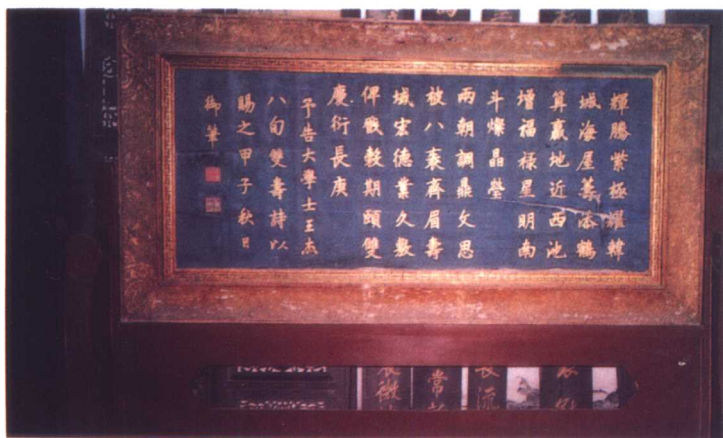 輝騰紫極耀韓
城海屋籌添鶴
算贏地近西池
增福祿星明南
斗燦晶瑩
兩朝調鼎文思
被八袠齊眉壽
域宏德業久敷
俾戩穀期頤雙
慶衍長庚
予告大學士王杰
八旬雙壽詩以
賜之甲子秋日
御筆
長流
常